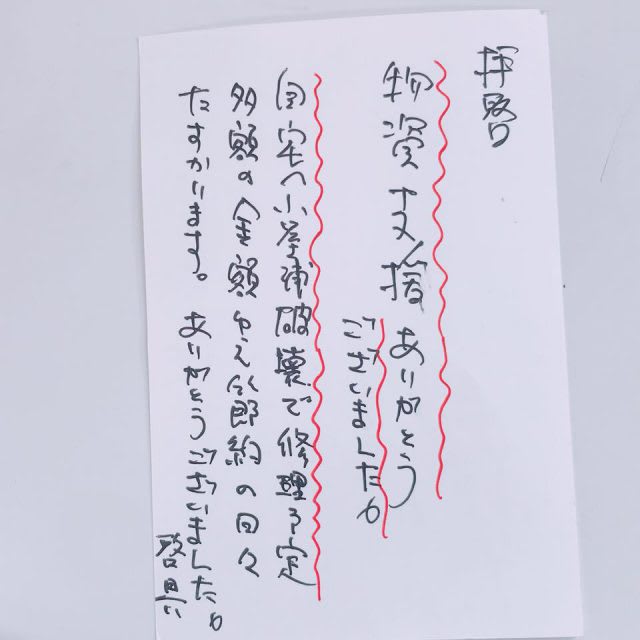 拝啓
物資支援ありがとう
ございました。
自宅の小屋補破壊で修理予定
多額の金額ゆえ節約の日々
たすかります。ありがとうございました。
啓具